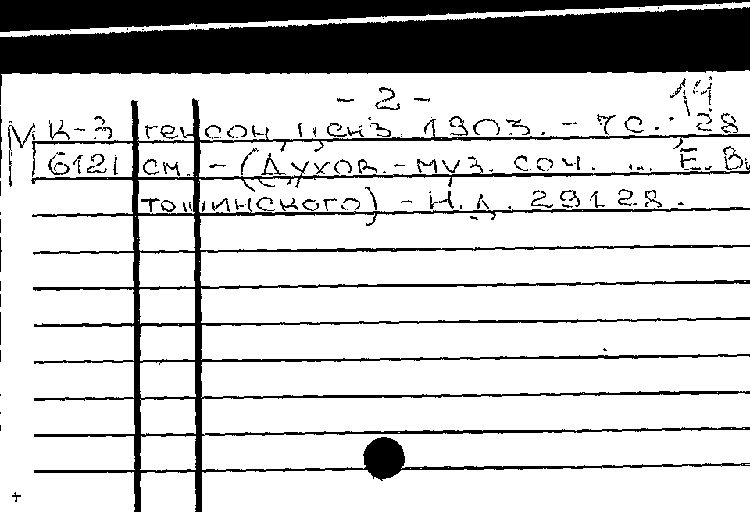 - 2 -
14
М К-3 генсон, ценз. 1903. - 7 с.; 28
6121 см. - (Духов.-муз. соч. ... Е. Ви
тошинского) - Н.д. 29128.
+